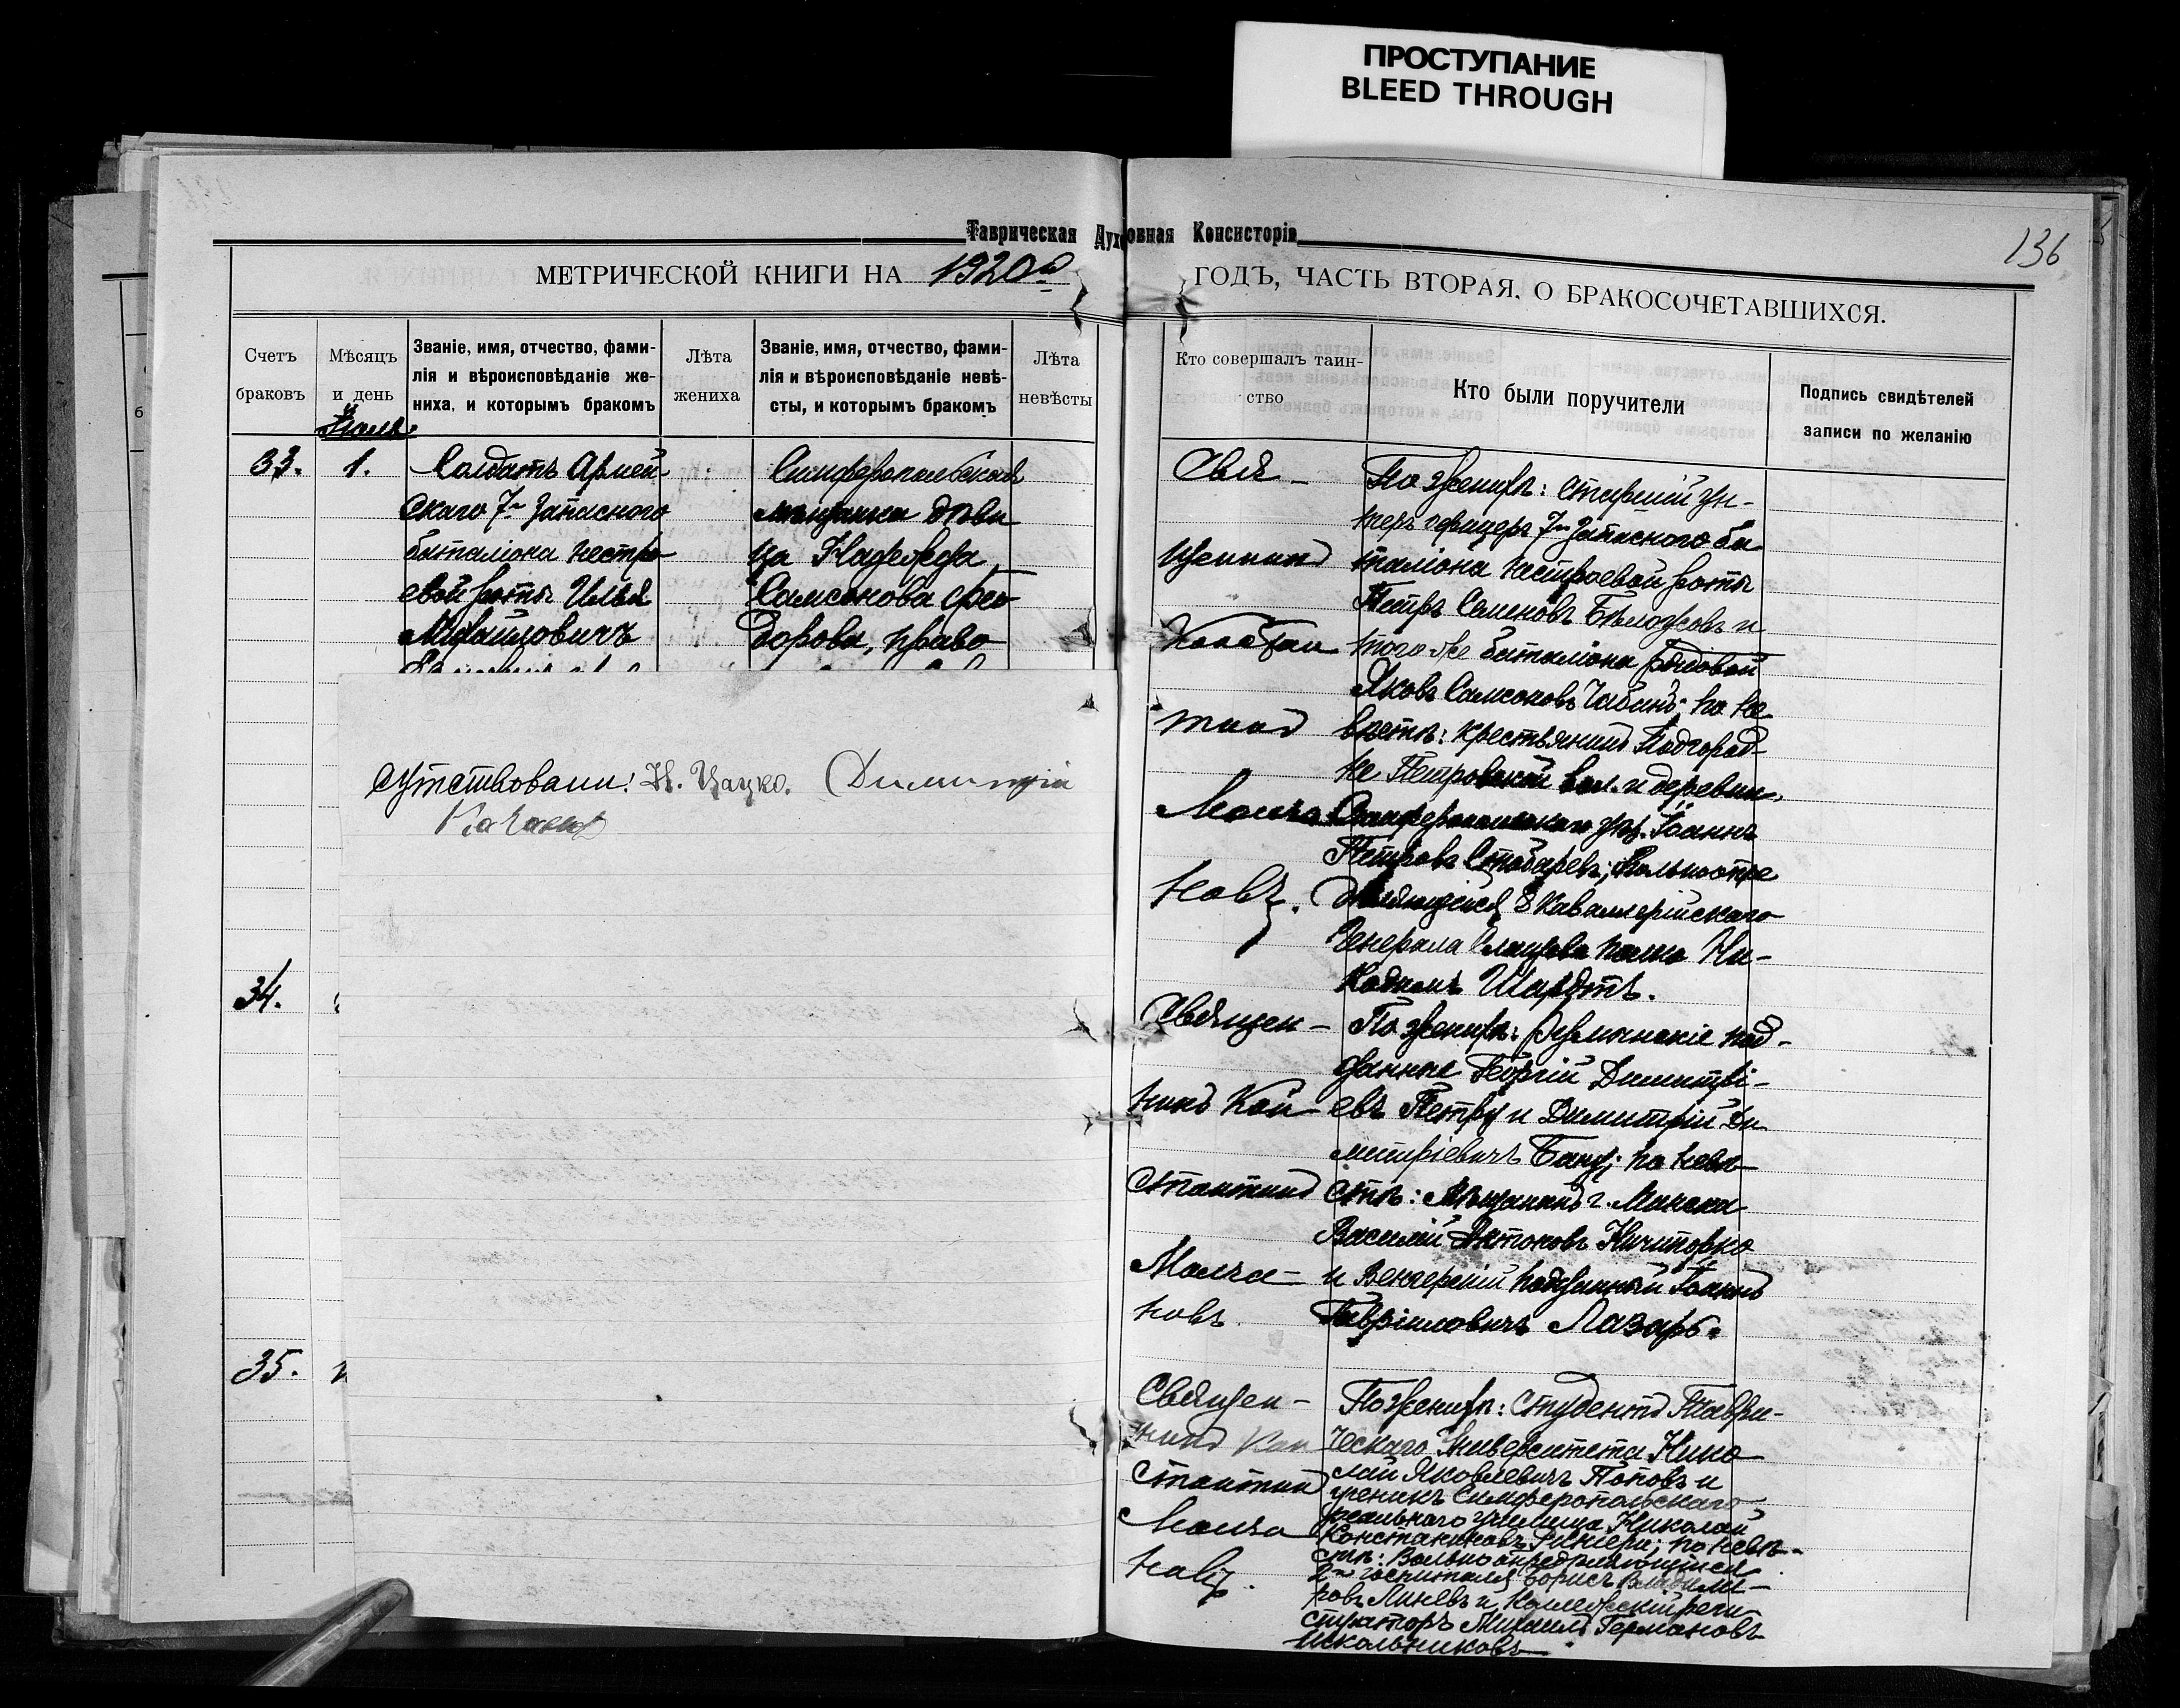 ПРОСТУПАНИЕ
BLEED THROUGH
136
Таврическая Духовная Консисторія
МЕТРИЧЕСКОЙ КНИГИ НА 1920й ГОДЪ, ЧАСТЬ ВТОРАЯ, О БРАКОСОЧЕТАВШИХСЯ.
Счетъ браковъ
Мѣсяцъ и день
Званіе, имя, отчество, фами-
лія и вѣроисповѣданіе же-
ниха, и которымъ бракомъ
Лѣта жениха
Званіе, имя, отчество, фами-
лія и вѣроисповѣданіе невѣ-
сты, и которымъ бракомъ
Лѣта невѣсты
Кто совершалъ таин-
ство
Кто были поручители
Подпись свидѣтелей
записи по желанію
33.
1.
Солдатъ Армей-
скаго 7го Запасного
баталіона нестро-
евой роты Илья
Михайловичъ
Симферопольская
мѣщанка дѣви-
ца Надежда
Самсонова Фео-
дорова, право-
сутствовали: Н. Цацко. Димитрій
34.
35.
Свя-
щенникъ
Констан-
тинъ
Молча-
новъ.
По женихѣ: старшій ун-
теръ офицеръ 7го Запасного ба-
таліона нестроевой роты
Петръ Семеновъ Бѣлоусовъ и
того же баталіона рядовой
Яковъ Самсоновъ Чабанъ; по не-
вѣстѣ: крестьянинъ Подгород-
не Петровской вол. и деревни,
Симферопольскаго уѣз. Іоаннъ
Петровъ; Вольноопре
дѣляющійся 8 Кавалерійскаго
Генерала полка Ни-
кодимъ Шардтъ.
Священ-
никъ Кон-
стантинъ
Молча-
новъ.
По женихѣ: Румынскіе под-
данные Георгій Димитрі-
евъ Петру и Димитрій Ди-
митріевичъ Бану; по невѣ-
стѣ: Мѣщанинъ г. Минска
Василій Антоновъ Ничипорко
и Венгерскій подданный Іоаннъ
Гавріиловичъ Лазаръ.
Священ-
никъ Кон
стантин
Молча
новъ.
По женихѣ: Студентъ Таври-
ческаго Университета Нико
лай Яковлевичъ Поповъ и
ученикъ Симферопольскаго
реальнаго училища Николай
Константиновъ; по невѣ-
стѣ: Вольноопредѣляющійся
2го госпиталя Борисъ Владими-
ровъ Линевъ и Коллежскій реги-
страторъ Михаилъ Германовъ
Школьниковъ